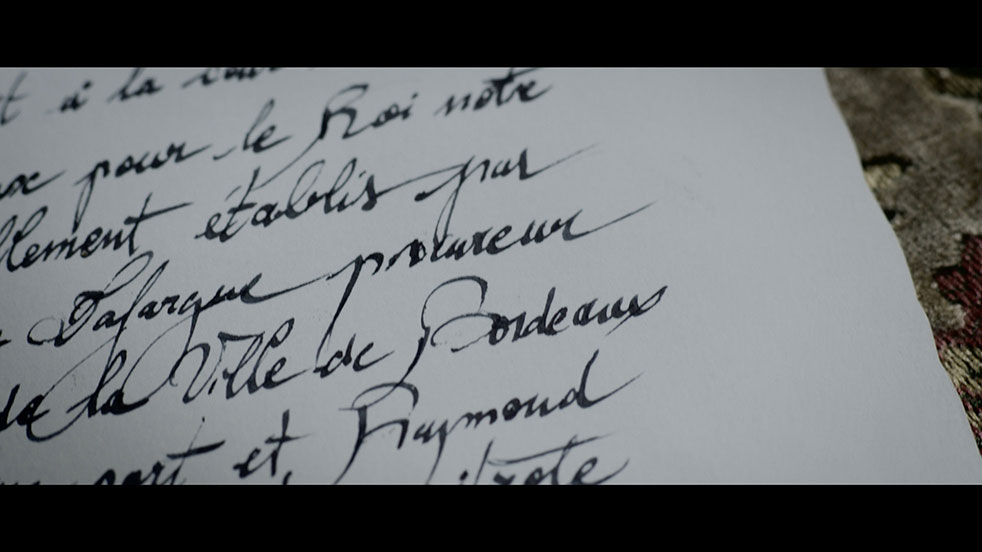 t à la cour
pour le Roi notre
llement établis par
Lafargue procureur
de la Ville de Bordeaux
part et Raymond